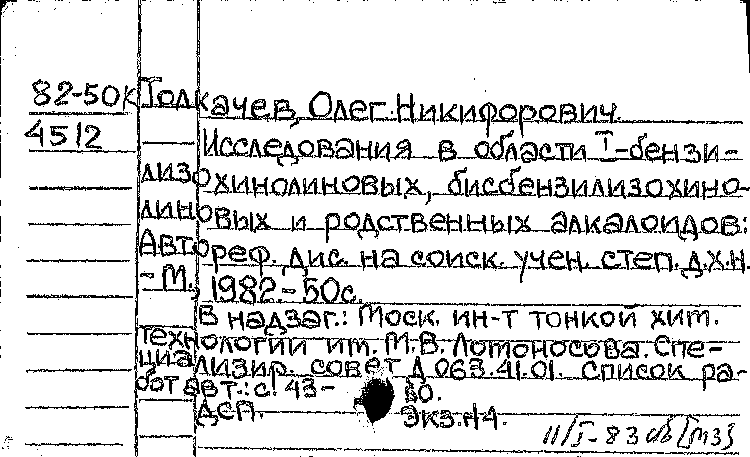 82-50к Толкачев, Олег Никифорович.
4512 Исследования в области I-бензи-
лизохинолиновых, бисбензилизохино-
линовых и родственных алкалоидов:
Автореф. дис. на соиск. учен. степ. д.х.н.
- М., 1982.- 50с.
В надзаг.: Моск. ин-т тонкой хим.
технологии им. М.В. Ломоносова. Спе-
циализир. совет Д 063.41.01. Список ра-
бот авт.: с. 43-50.
ДСП. Экз.№4.
11/I-83